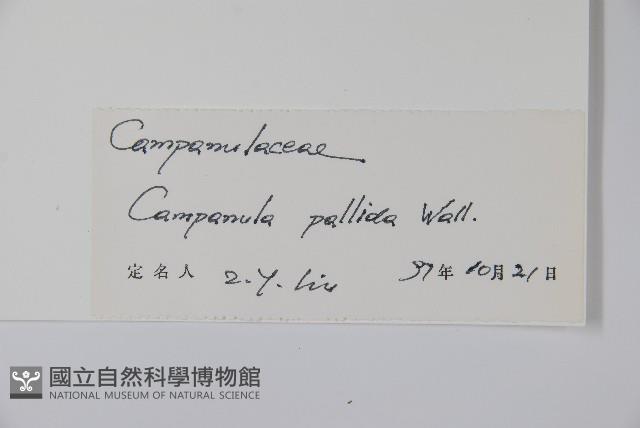 Campanulaceae
Campanula pallida Wall.
定名人 Z.Y. Liu 97年10月21日
國立自然科學博物館
NATIONAL MUSEUM OF NATURAL SCIENCE